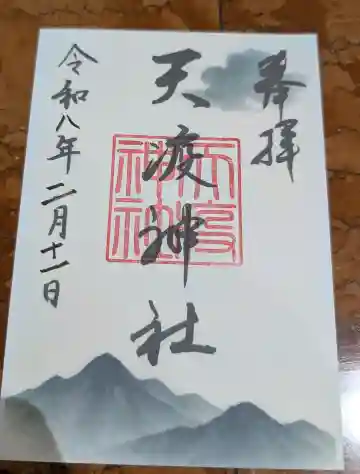 奉拝
天渡神社
令和八年二月十一日